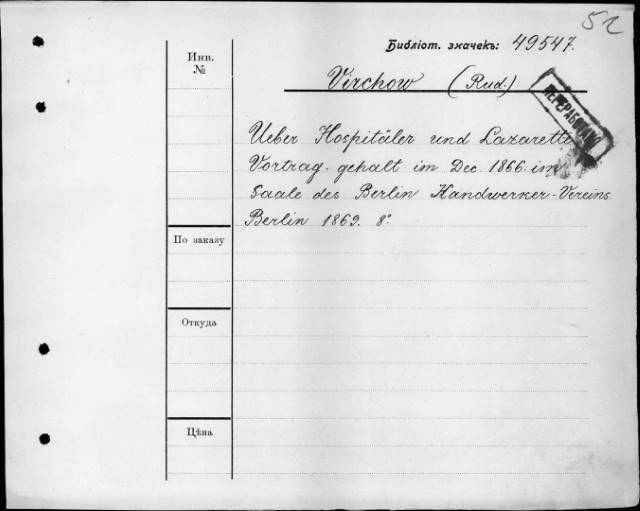 52
Библіот. значекъ: 49547.
Инв.
№
Virchow (Rud.)
ПЕРЕРАБОТАНО
Ueber Hospitäler und Lazarette
Vortrag. gehalt im Dec. 1866. im
Saale des Berlin Handwerker-Vereins
Berlin 1869. 8°
По заказу
Откуда
Цѣна